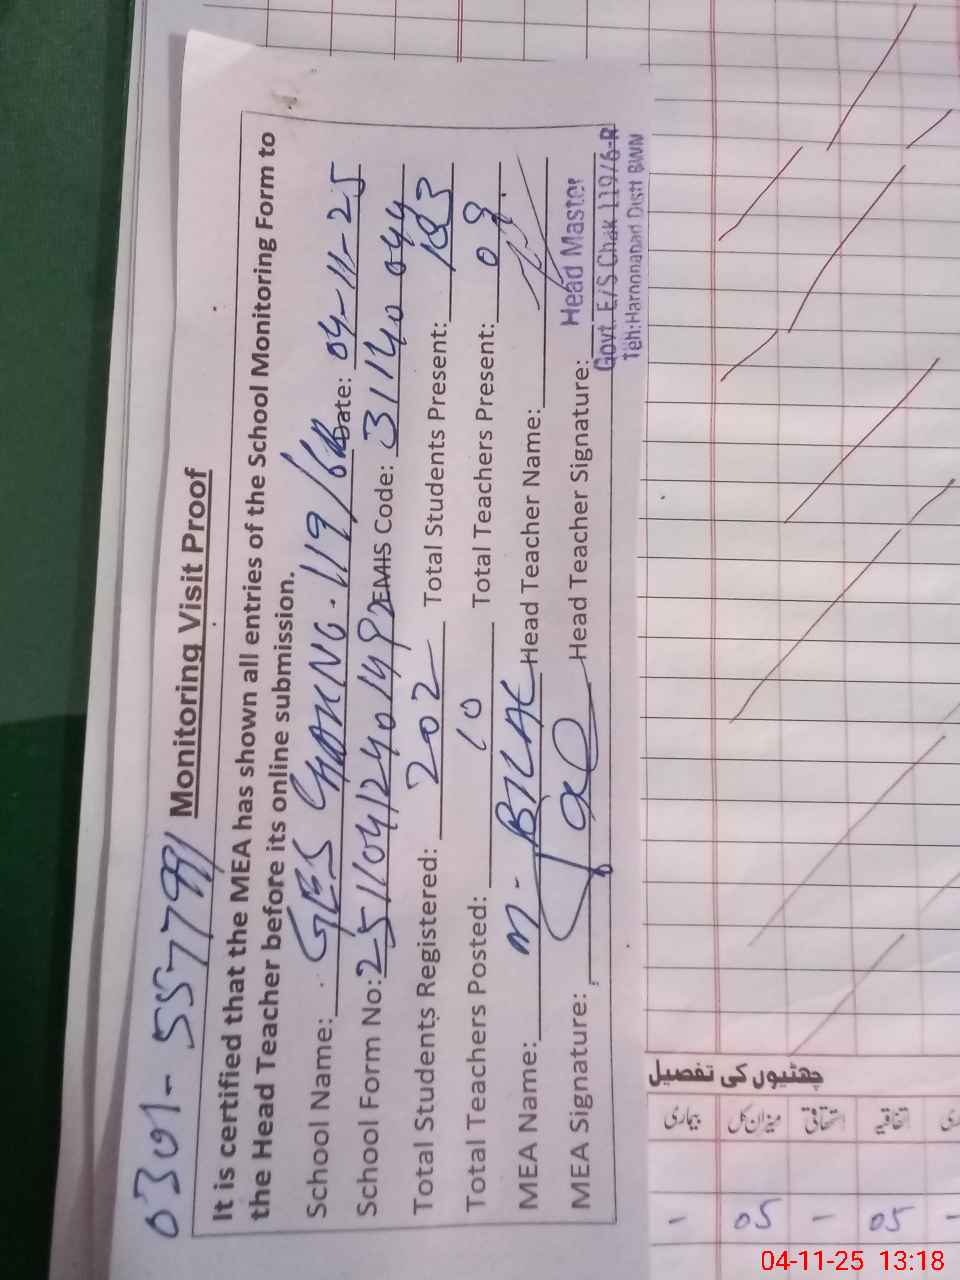 0301-5577991
Monitoring Visit Proof
It is certified that the MEA has shown all entries of the School Monitoring Form to
the Head Teacher before its online submission.
School Name: GES CHAK NO. 119/6R Date: 04-11-25
School Form No: 2511041240149 EMIS Code: 31140044
Total Students Registered: 202 Total Students Present: 183
Total Teachers Posted: 10 Total Teachers Present: 09
MEA Name: M. BILAL Head Teacher Name:
MEA Signature: Head Teacher Signature:
Head Master
Govt. E/S Chak 119/6-R
Teh: Haroonabad Distt BWN
چھٹیوں کی تفصیل
بیماری
میزان کل
استحقاقی
اتفاقیہ
- 05 - 05 -
04-11-25 13:18